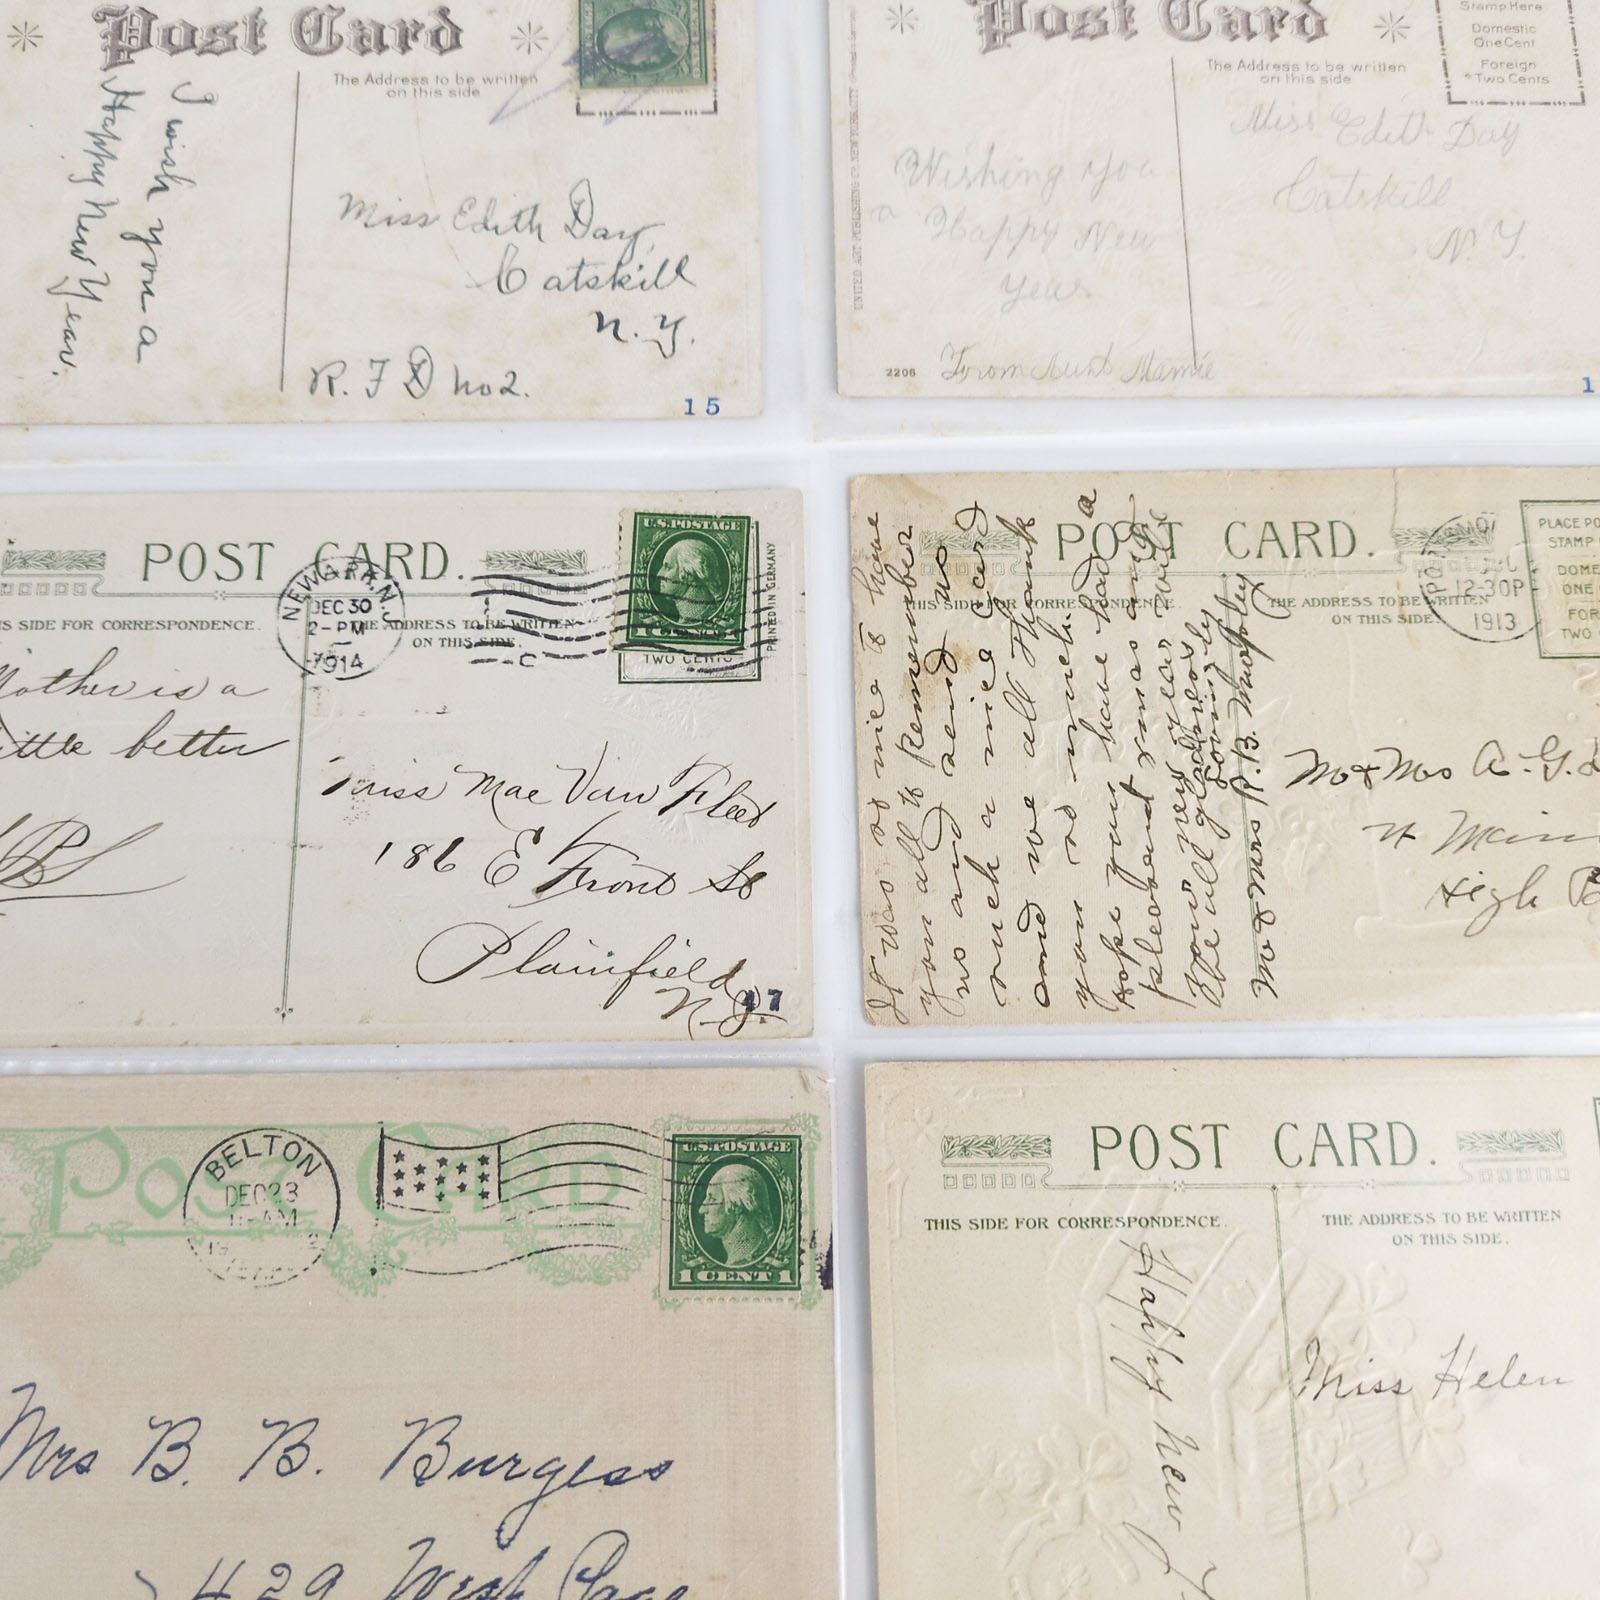 Post Card
The Address to be written
on this side
I wish you a
Happy New Year.
Miss Edith Day,
Catskill
N. Y.
R. F D no 2.
15
Post Card
Stamp Here
Domestic
One Cent
Foreign
Two Cents
The Address to be written
on this side
UNITED ART PUBLISHING CO. NEW YORK CITY
Miss Edith Day
Catskill
N. Y.
Wishing you
a Happy New
Year
2206
From Aunt Mamie
1
POST CARD.
NEWARK, N.J.
DEC 30
2-PM
1914
IS SIDE FOR CORRESPONDENCE.
THE ADDRESS TO BE WRITTEN
ON THIS SIDE.
U.S. POSTAGE
1 CENT
TWO CENTS
PRINTED IN GERMANY
Mother is a
little better
Miss Mae Van Fleet
186 E Front St
Plainfield
N. J.
17
POST CARD.
THIS SIDE FOR CORRESPONDENCE.
THE ADDRESS TO BE WRITTEN
ON THIS SIDE.
12-30P
1913
PLACE PO
STAMP
DOME
ONE
FOR
TWO
It was so nice to have
you all to remember
us and send us
such a nice card
and we all thank
you so much.
hope you have had a
pleasant xmas and
new year
Mr & Mrs R. B.
Mr & Mrs A. G.
N Main
High
Post Card
BELTON
DEC 23
11-AM
U.S. POSTAGE
1 CENT 1
Mrs B. B. Burgess
429 West
POST CARD.
THIS SIDE FOR CORRESPONDENCE.
THE ADDRESS TO BE WRITTEN
ON THIS SIDE.
Happy New Y
Miss Helen